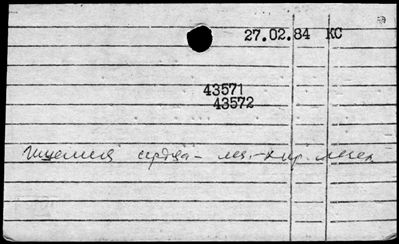 27.02.84 КС
43571
43572
Ишемия сердца - мед.-хир. мед